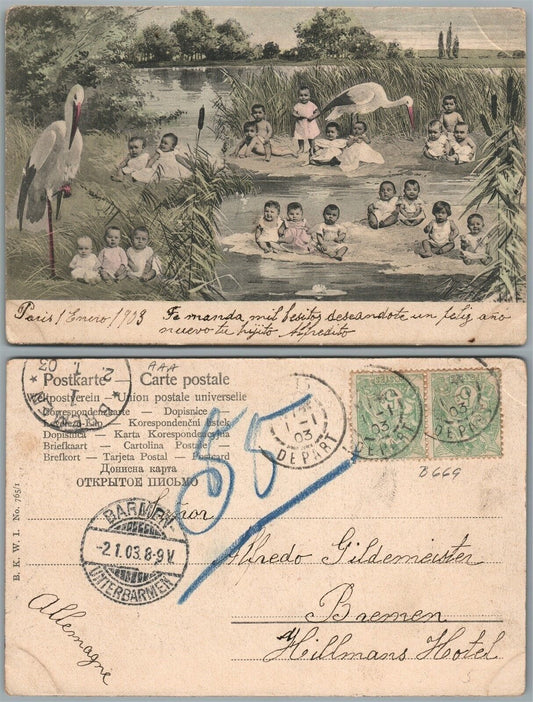 Paris 1 Enero/903 Te manda mil besitos deseandote un feliz año
nuevo tu hijito Alfredito
AAA
Postkarte — Carte postale
Weltpostverein — Union postale universelle
Correspondenzkarte – Dopisnice
Levelezö-Lap – Korespondenční lístek
Dopisnica – Karta Korespondencyjna
Briefkaart – Cartolina Postale
Brefkort – Tarjeta Postal – Postcard
Дописна карта
ОТКРЫТОЕ ПИСЬМО
2. 1. 03
DEPART
1 - 1
03
DEPART
03
DEPART
B669
55
B. K. W. I. No. 765/1
BARMEN-
-2.1.03.8-9V.
UNTERBARMEN
Señor
Alfredo Gildemeister
Bremen
Hillmans Hotel
Allemagne